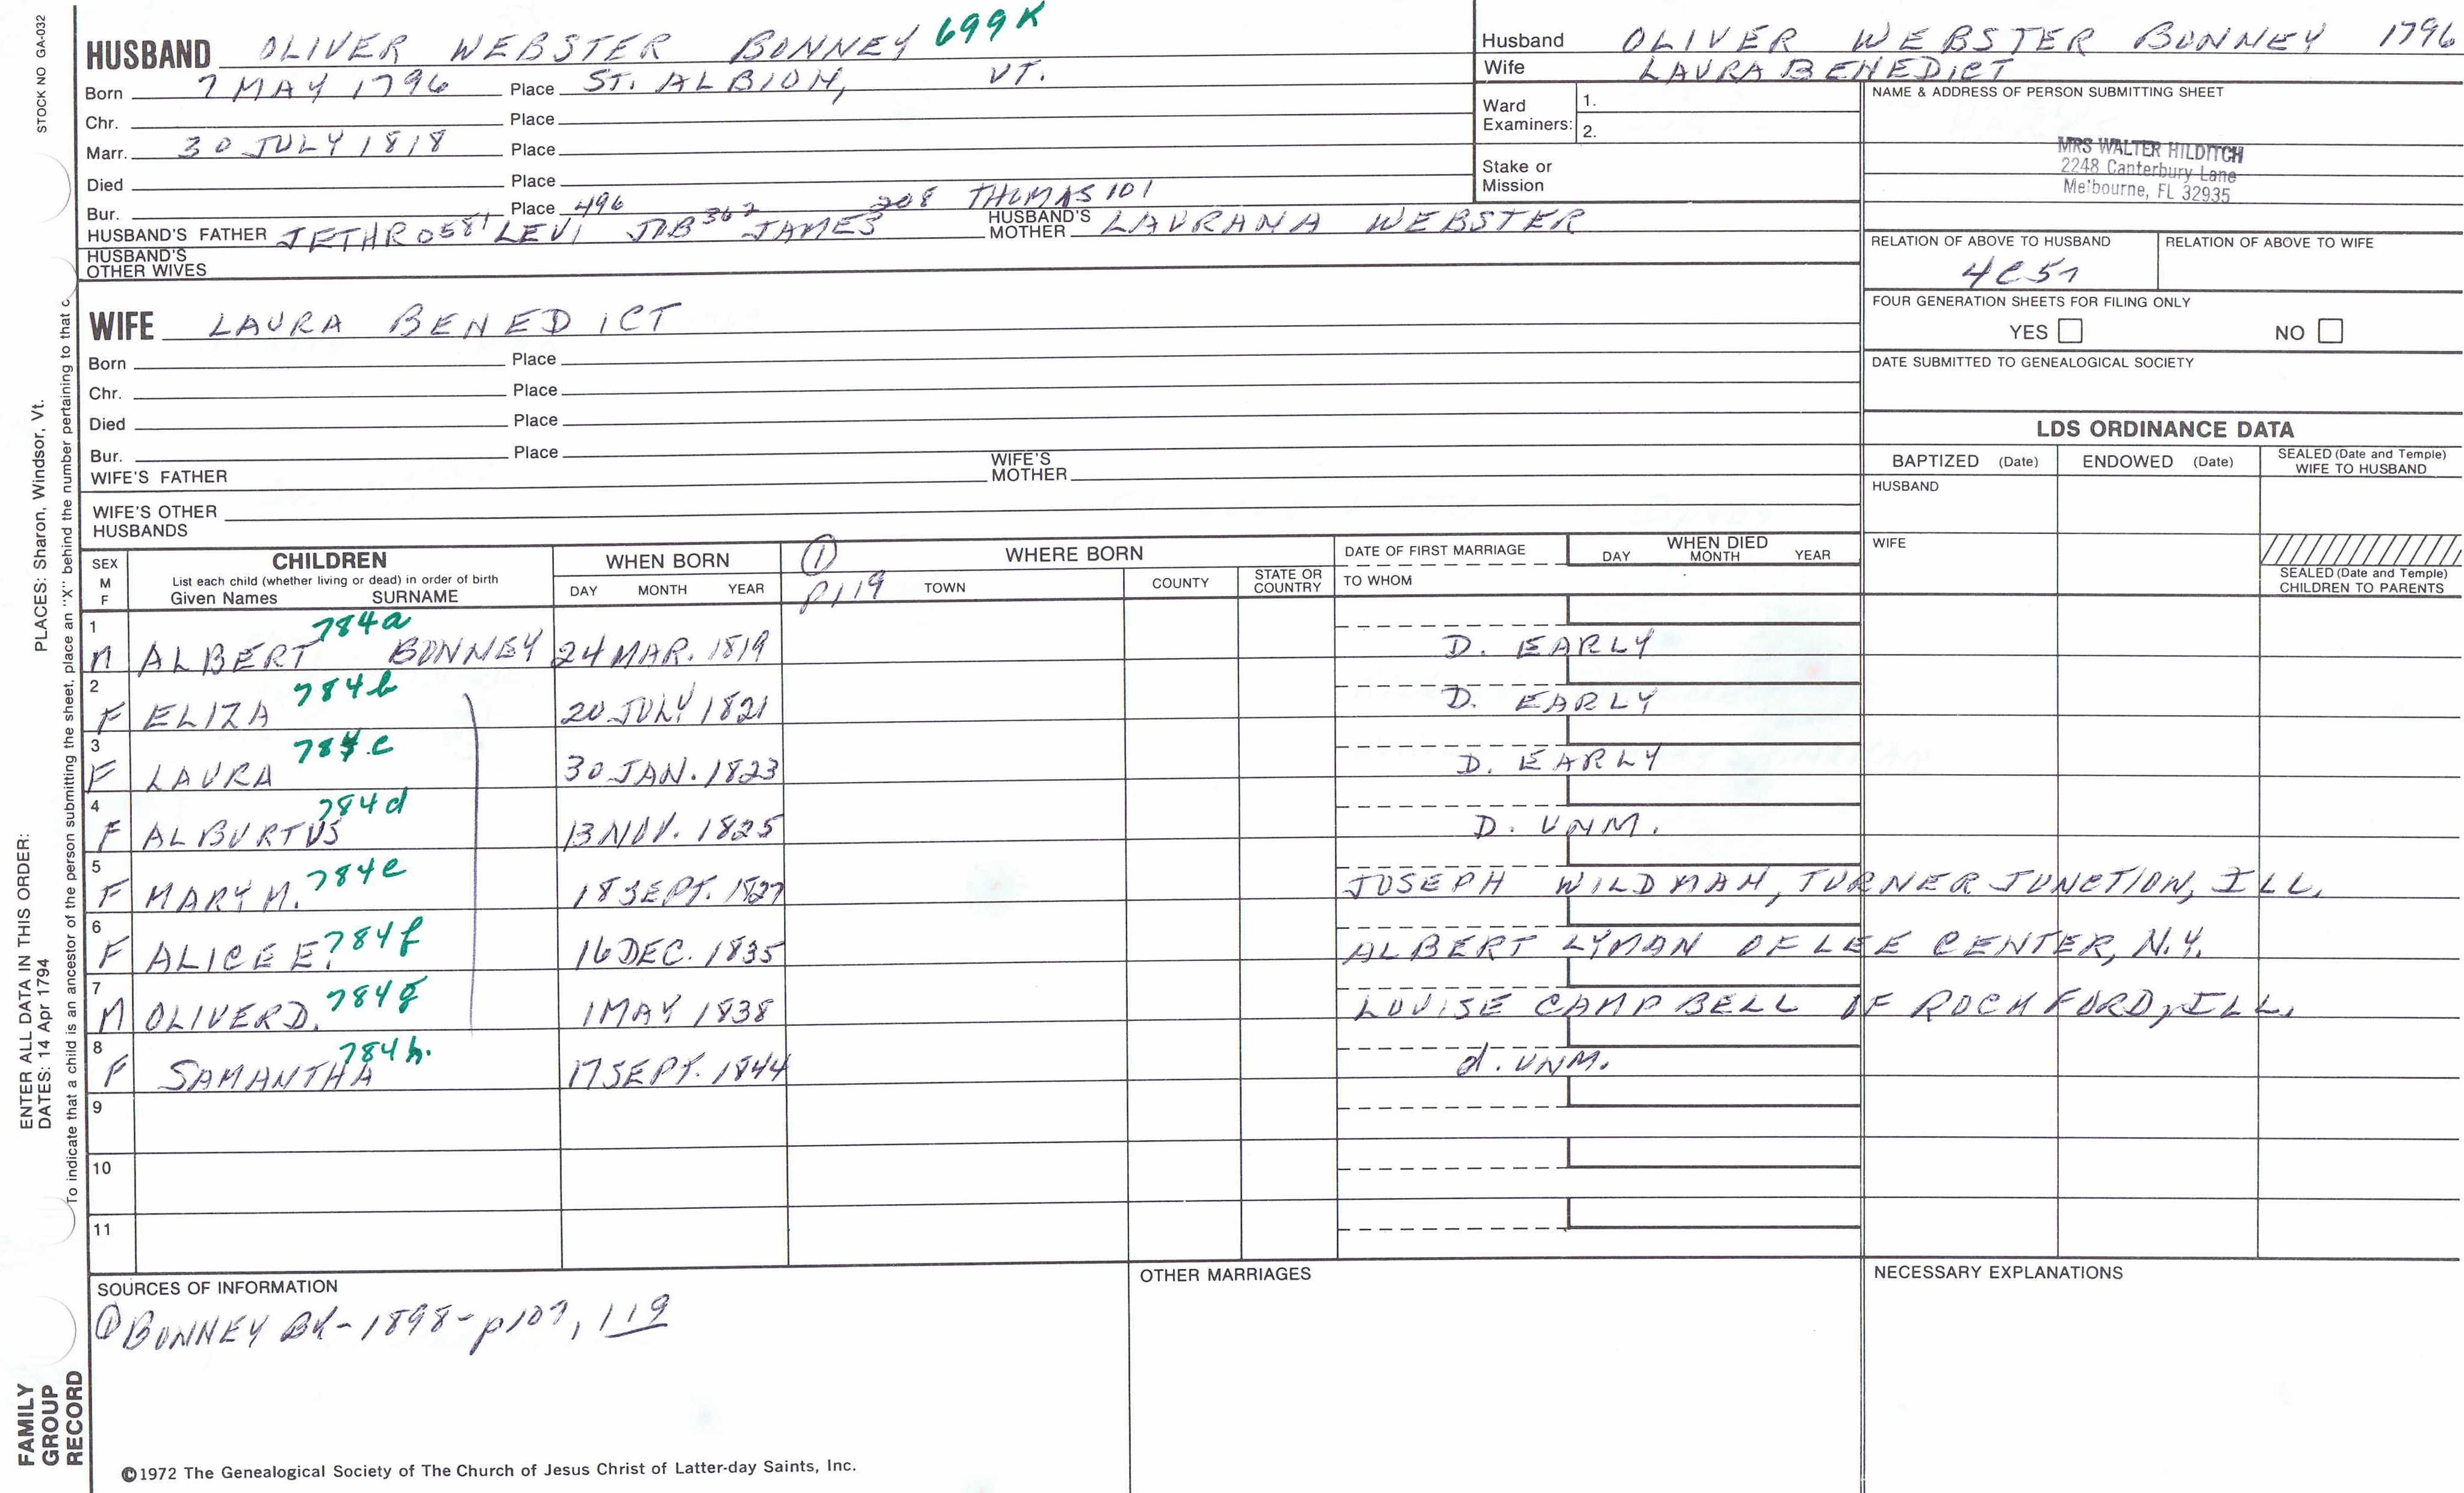 STOCK NO GA-032
HUSBAND OLIVER WEBSTER BONNEY 699K
Born 7 MAY 1796 Place ST. ALBION, VT.
Chr. Place
Marr. 30 JULY 1818 Place
Died Place
Bur. Place 496 208 THOMAS 101
HUSBAND'S FATHER JETHRO 581 LEVI JOB 362 JAMES HUSBAND'S MOTHER LAURANA WEBSTER
HUSBAND'S OTHER WIVES
WIFE LAURA BENEDICT
Born Place
Chr. Place
Died Place
Bur. Place
WIFE'S FATHER WIFE'S MOTHER
WIFE'S OTHER HUSBANDS
Husband OLIVER WEBSTER BONNEY 1796
Wife LAURA BENEDICT
Ward Examiners: 1.
2.
Stake or Mission
NAME & ADDRESS OF PERSON SUBMITTING SHEET
MRS WALTER HILDITCH
2248 Canterbury Lane
Melbourne, FL 32935
RELATION OF ABOVE TO HUSBAND RELATION OF ABOVE TO WIFE
FOUR GENERATION SHEETS FOR FILING ONLY
YES NO
DATE SUBMITTED TO GENEALOGICAL SOCIETY
LDS ORDINANCE DATA
BAPTIZED (Date) ENDOWED (Date) SEALED (Date and Temple) WIFE TO HUSBAND
HUSBAND
WIFE
SEALED (Date and Temple) CHILDREN TO PARENTS
SEX M F
CHILDREN
List each child (whether living or dead) in order of birth
Given Names SURNAME
WHEN BORN
DAY MONTH YEAR
① P119
WHERE BORN
TOWN COUNTY STATE OR COUNTRY
DATE OF FIRST MARRIAGE
TO WHOM
WHEN DIED
DAY MONTH YEAR
1 M ALBERT BONNEY 784a 24 MAR. 1819 D. EARLY
2 F ELIZA 784b 20 JULY 1821 D. EARLY
3 F LAURA 784c 30 JAN. 1823 D. EARLY
4 F ALBURTUS 784d 13 NOV. 1825 D. UNM.
5 F MARY M. 784e 18 SEPT. 1827 JOSEPH WILDMAN, TURNER JUNCTION, ILL.
6 F ALICE E. 784f 16 DEC. 1835 ALBERT LYMAN OF LEE CENTER, N.Y.
7 M OLIVER D. 784g 1 MAY 1838 LOUISE CAMPBELL OF ROCKFORD, ILL.
8 F SAMANTHA 784h. 17 SEPT. 1844 d. UNM.
9
10
11
SOURCES OF INFORMATION
① BONNEY BK-1898-p107, 119
OTHER MARRIAGES
NECESSARY EXPLANATIONS
©1972 The Genealogical Society of The Church of Jesus Christ of Latter-day Saints, Inc.
FAMILY GROUP RECORD
ENTER ALL DATA IN THIS ORDER:
DATES: 14 Apr 1794 PLACES: Sharon, Windsor, Vt.
To indicate that a child is an ancestor of the person submitting the sheet, place an "X" behind the number pertaining to that c